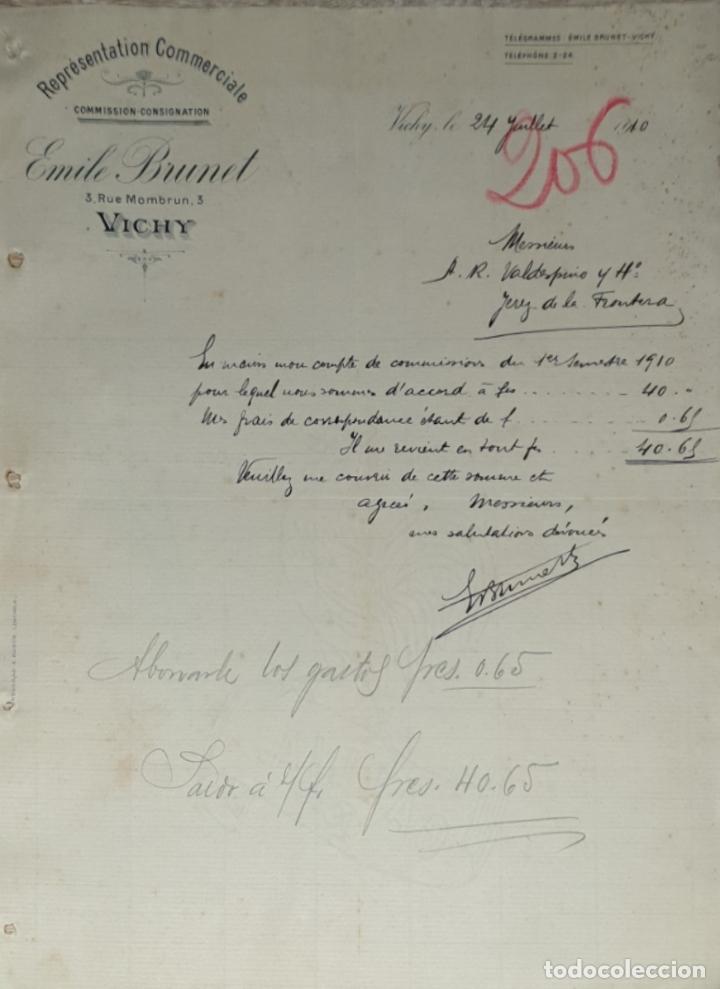 Représentation Commerciale
COMMISSION-CONSIGNATION
Emile Brunet
3, Rue Mombrun, 3
VICHY
TÉLÉGRAMMES: ÉMILE BRUNET-VICHY
TÉLÉPHONE 2-24
Vichy, le 24 Juillet 1910
206
Messieurs
A. R. Valdespino y Hº
Jerez de la Frontera
En mains mon compte de commissions du 1er Semestre 1910
pour lequel nous sommes d'accord à frs ........ 40 . "
Mes frais de correspondance étant de f. ........ 0.65
Il me revient en tout frs. 40.65
Veuillez me couvrir de cette somme et
agréer, Messieurs,
mes salutations dévouées
EBrunet
Abonarle los gastos fres. 0.65
á fres. 40.65
todocoleccion